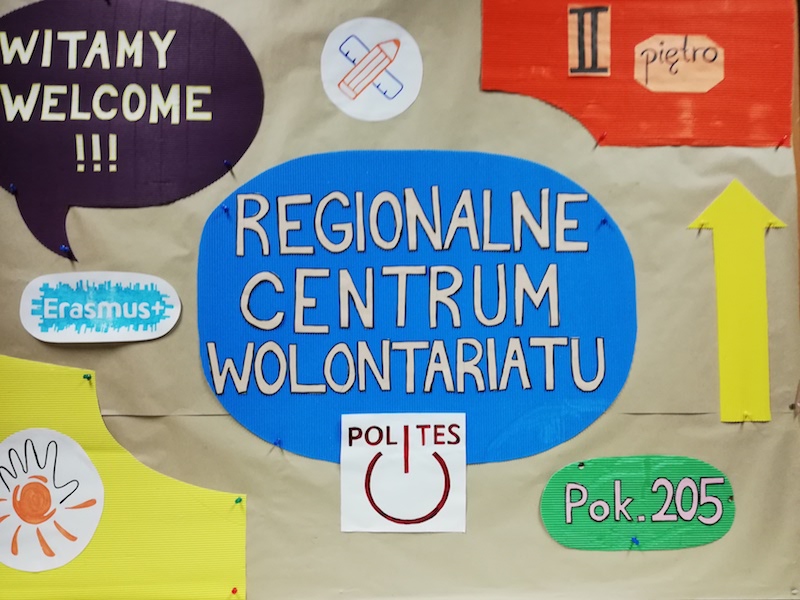 WITAMY
WELCOME
!!!
II
piętro
REGIONALNE
CENTRUM
WOLONTARIATU
Erasmus+
POLITES
Pok. 205